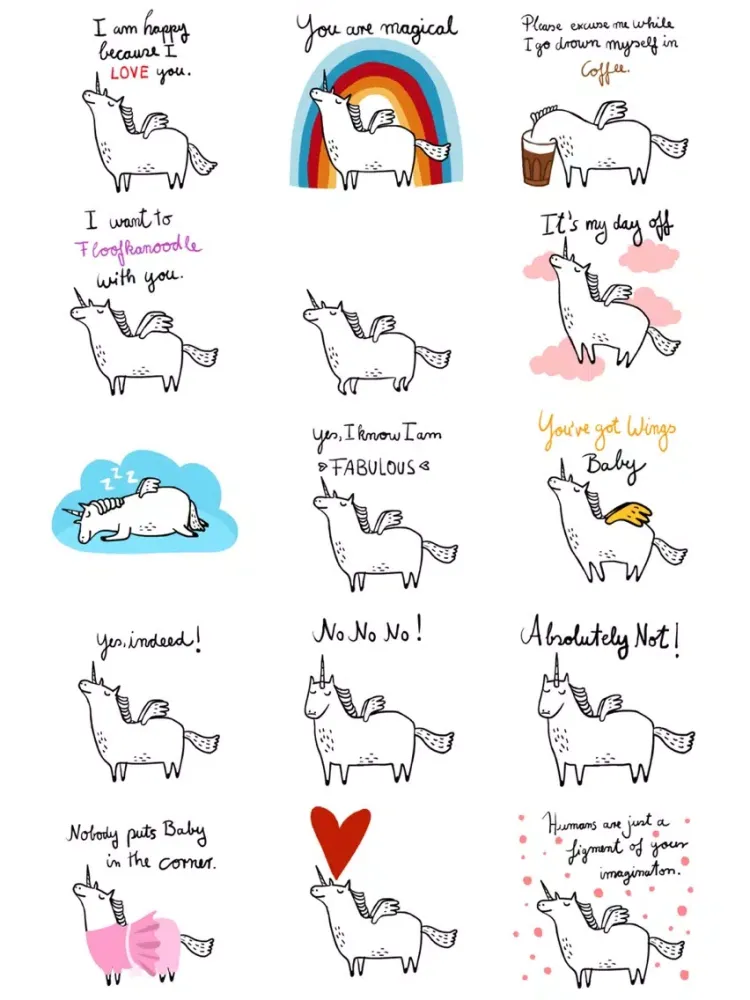 I am happy
because I
LOVE you.
You are magical
Please excuse me while
I go drown myself in
Coffee.
I want to
Floofkanoodle
with you.
It's my day off
z z z
Yes, I know I am
FABULOUS
You've got Wings
Baby
Yes, indeed!
No No No!
Absolutely Not!
Nobody puts Baby
in the corner.
Humans are just a
figment of your
imagination.